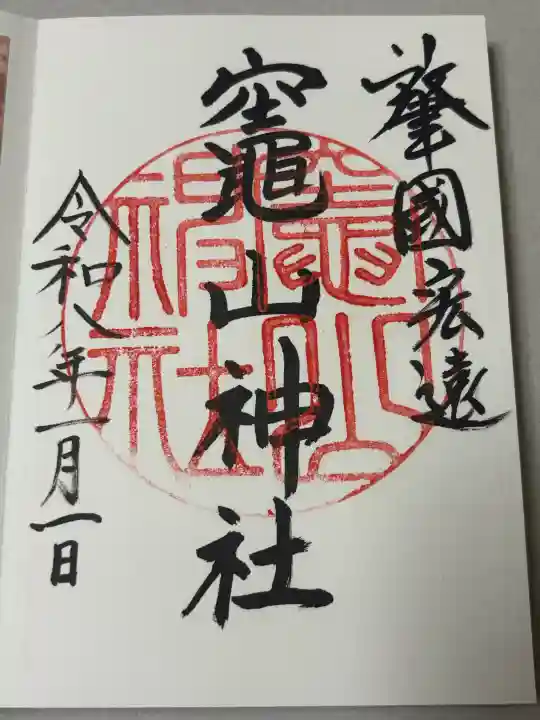 肇國宏遠
竈山神社
竈山神社
令和八年一月一日